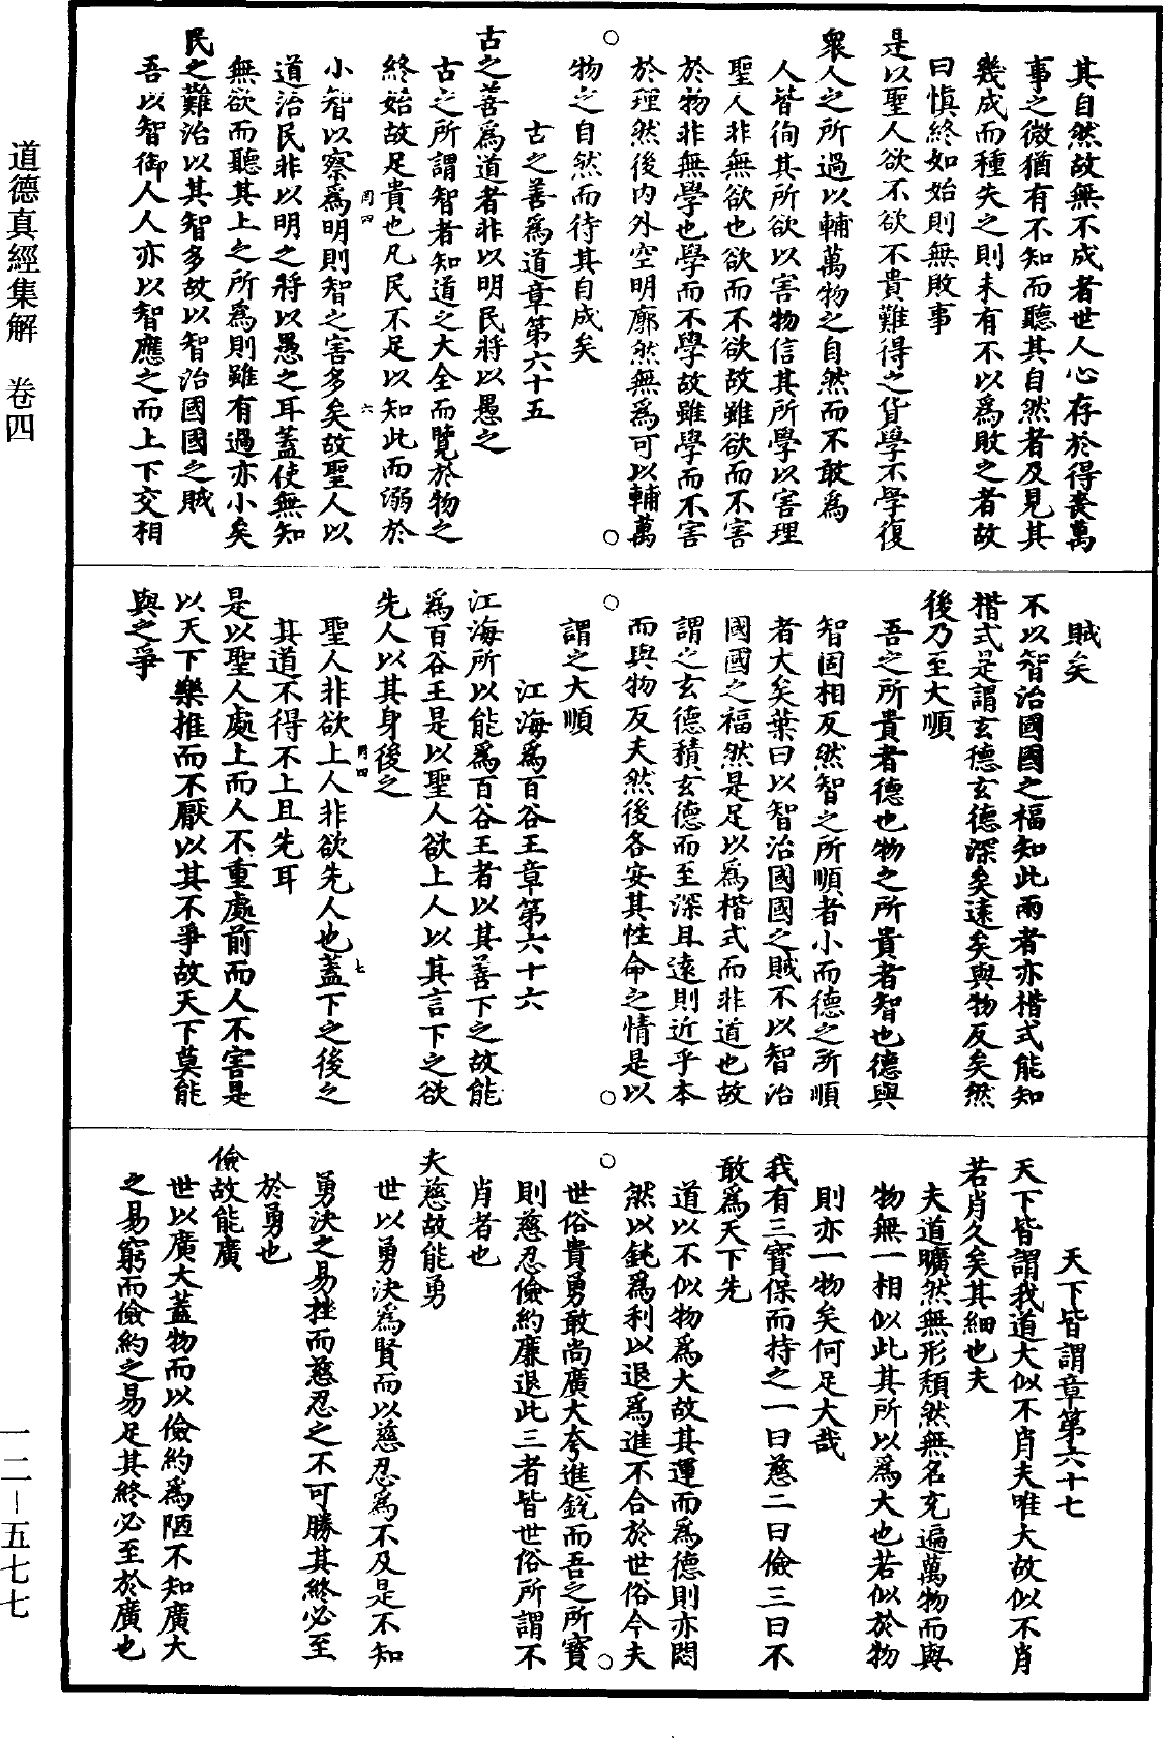 其自然故無不成者世人心存於得喪萬
事之微猶有不知而聽其自然者及見其
幾成而種失之則未有不以爲敗之者故
曰愼終如始則無敗事
是以聖人欲不欲不貴難得之貨學不學復
衆人之所過以輔萬物之自然而不敢爲
人皆徇其所欲以害物信其所學以害理
聖人非無欲也欲而不欲故雖欲而不害
於物非無學也學而不學故雖學而不害
於理然後内外空明廓然無爲可以輔萬
物之自然而待其自成矣
古之善爲道章第六十五
古之善爲道者非以明民將以愚之
古之所謂智者知道之大全而覽於物之
終始故足貴也凡民不足以知此而溺於
小智以察爲明則智之害多矣故聖人以
道治民非以明之將以愚之耳蓋使無知
無欲而聽其上之所爲則雖有過亦小矣
民之難治以其智多故以智治國國之賊
吾以智御人人亦以智應之而上下交相
賊矣
不以智治國國之福知此兩者亦楷式能知
楷式是謂玄德玄德深矣遠矣與物反矣然
後乃至大順
吾之所貴者德也物之所貴者智也德與
智固相反然智之所順者小而德之所順
者大矣葉曰以智治國國之賊不以智治
國國之福然是足以爲楷式而非道也故
謂之玄德積玄德而至深且遠則近乎本
而與物反夫然後各安其性命之情是以
謂之大順
江海爲百谷王章第六十六
江海所以能爲百谷王者以其善下之故能
爲百谷王是以聖人欲上人以其言下之欲
先人以其身後之
聖人非欲上人非欲先人也蓋下之後之
其道不得不上且先耳
是以聖人處上而人不重處前而人不害是
以天下樂推而不厭以其不爭故天下莫能
與之爭
天下皆謂章第六十七
天下皆謂我道大似不肖夫唯大故似不肖
若肖久矣其細也夫
夫道曠然無形頹然無名充遍萬物而與
物無一相似此其所以爲大也若似於物
則亦一物矣何足大哉
我有三寶保而持之一曰慈二曰儉三曰不
敢爲天下先
道以不似物爲大故其運而爲德則亦悶
然以鈍爲利以退爲進不合於世俗今夫
世俗貴勇敢尚廣大夸進銳而吾之所寶
則慈忍儉約廉退此三者皆世俗所謂不
肖者也
夫慈故能勇
世以勇決爲賢而以慈忍爲不及是不知
勇決之易挫而慈忍之不可勝其終必至
於勇也
儉故能廣
世以廣大蓋物而以儉約爲陋不知廣大
之易窮而儉約之易足其終必至於廣也
道德真經集解　卷四
一二－五七七